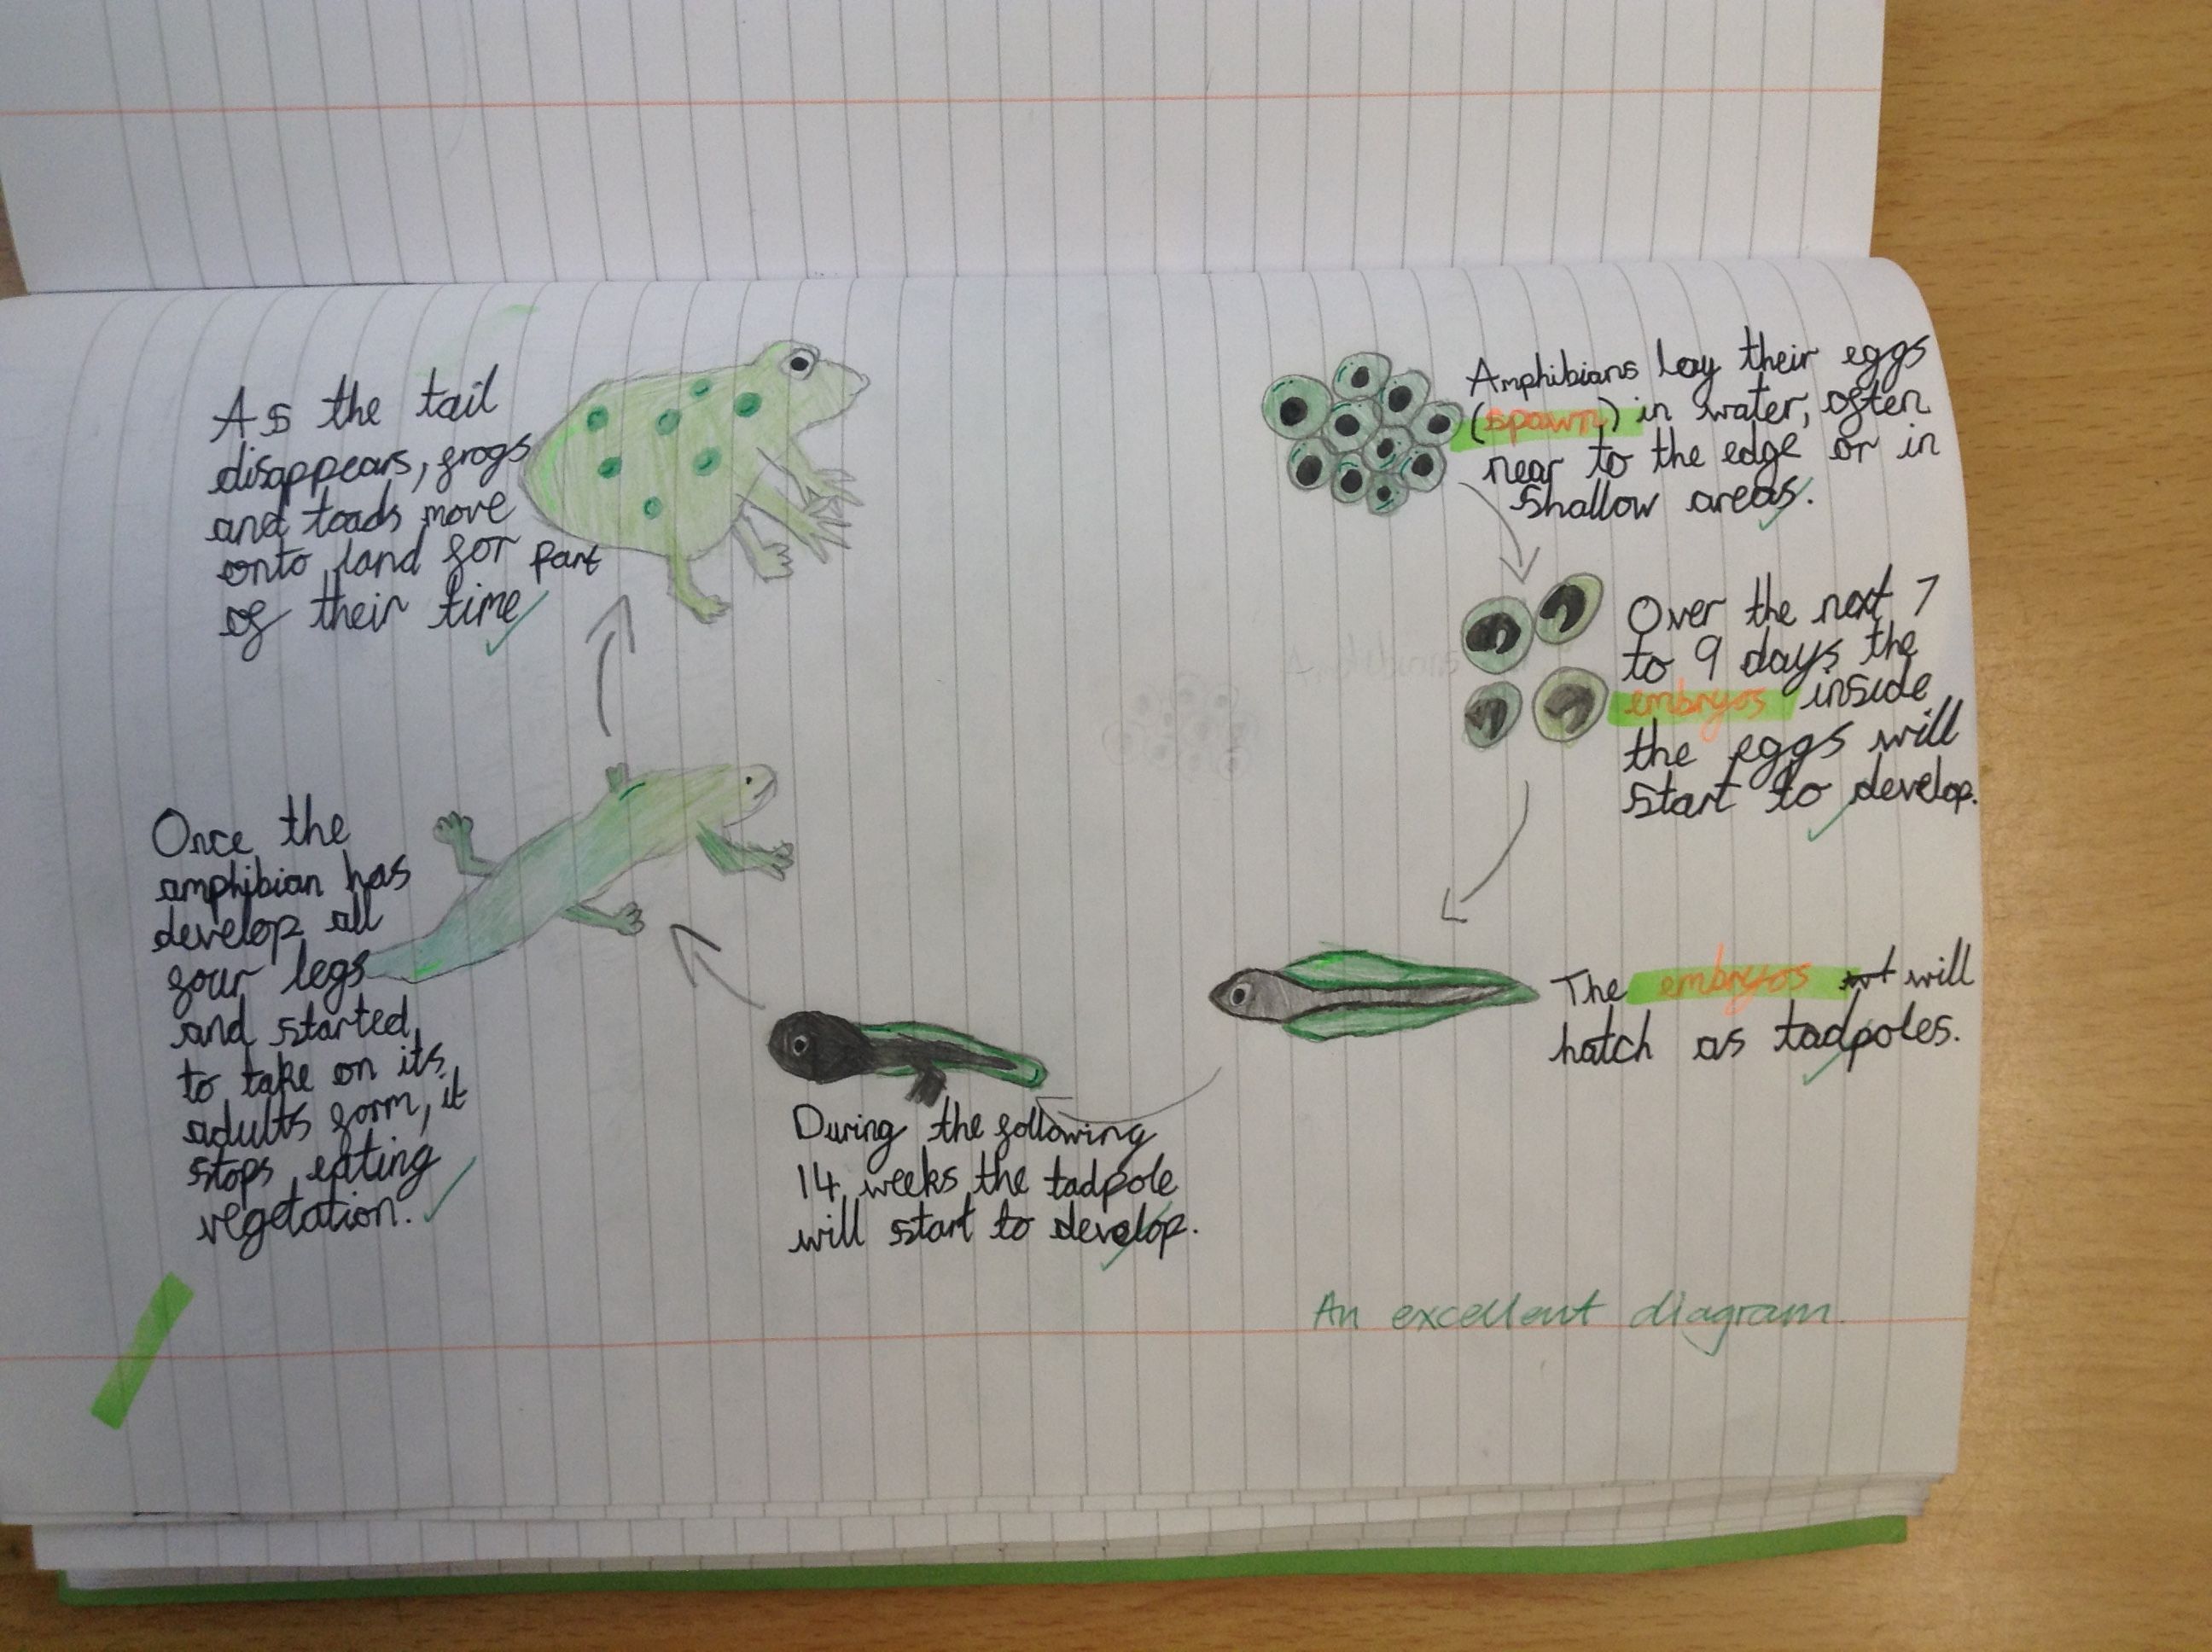 Amphibians lay their eggs
(spawn) in water, often
near to the edge or in
shallow areas.
Over the next 7
to 9 days the
embryos inside
the eggs will
start to develop.
The embryos will
hatch as tadpoles.
During the following
14 weeks the tadpole
will start to develop.
Once the
amphibian has
develop all
four legs
and started
to take on its
adults form, it
stops eating
vegetation.
As the tail
disappears, frogs
and toads move
onto land for part
of their time
An excellent diagram.